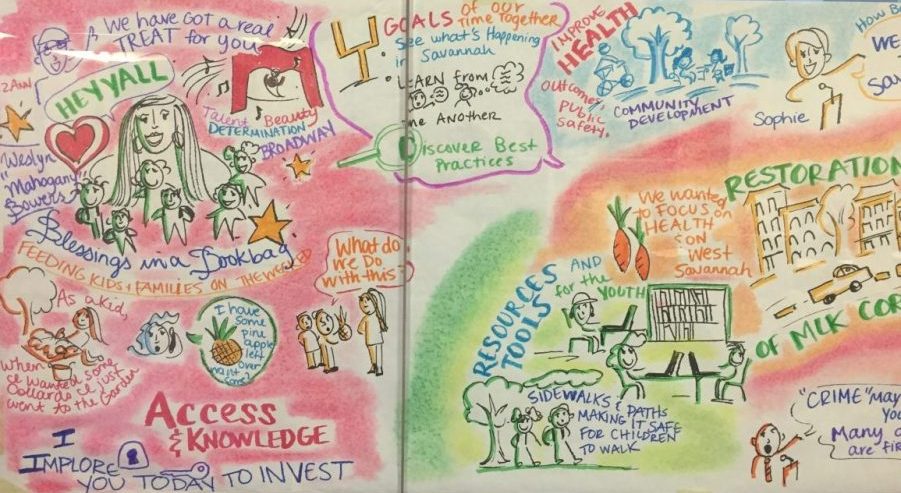 We have Got a real
TREAT for you
ZANN
HEY YALL
Weslyn
"Mahogany"
Bowers
Talent Beauty
DETERMINATION
BROADWAY
Blessings in a Bookbag
FEEDING KIDS & FAMILIES ON THE WEEKEND
As a kid,
when
I wanted some
Collards I just
went to the Garden
I have
some
pine
apple
left
over
want
some?
What do
we Do
with this?
Access
& KNOWLEDGE
I
IMPLORE
YOU TODAY TO INVEST
GOALS of our
Time Together
• See what's Happening
in Savannah
• LEARN from
one ANOTHER
Discover Best
Practices
IMPROVE
HEALTH
Outcomes,
Public
Safety,
COMMUNITY
DEVELOPMENT
Sophie
How B
WE
Sav
We wanted
to FOCUS on
HEALTH
ON
West
Savannah
RESTORATION
OF MLK COR
RESOURCES
TOOLS
AND
for the
YOUTH
SIDEWALKS &
MAKING PATHS
IT SAFE
FOR CHILDREN
TO WALK
"CRIME" may
you
Many o
are fir